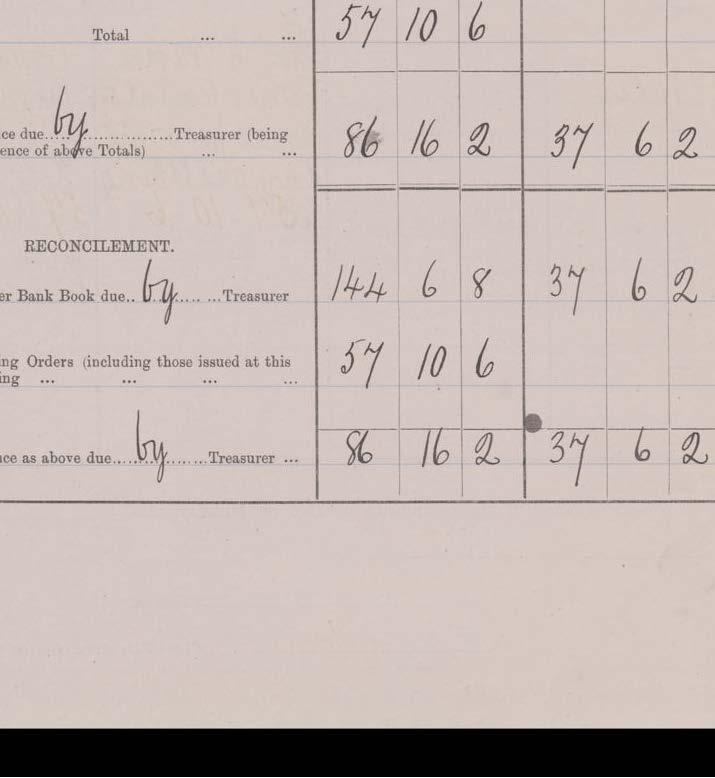 Total ... ... 57 10 6
ce due.. by ..............Treasurer (being
ence of above Totals) ... ... 86 16 2 37 6 2
RECONCILEMENT.
er Bank Book due.. by ..... ...Treasurer 144 6 8 37 6 2
ng Orders (including those issued at this
ing ... ... ... ... 57 10 6
ce as above due.... by ........Treasurer ... 86 16 2 37 6 2